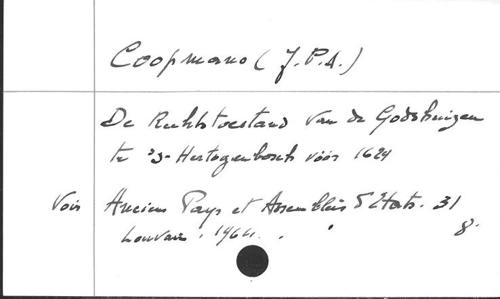 Coopmans (J.P.A.)
De Rechtstoestand van de Godshuizen
te 's-Hertogenbosch vóór 1629
Voir Anciens Pays et Assemblées d'Etats. 31
Louvain. 1964. 8.